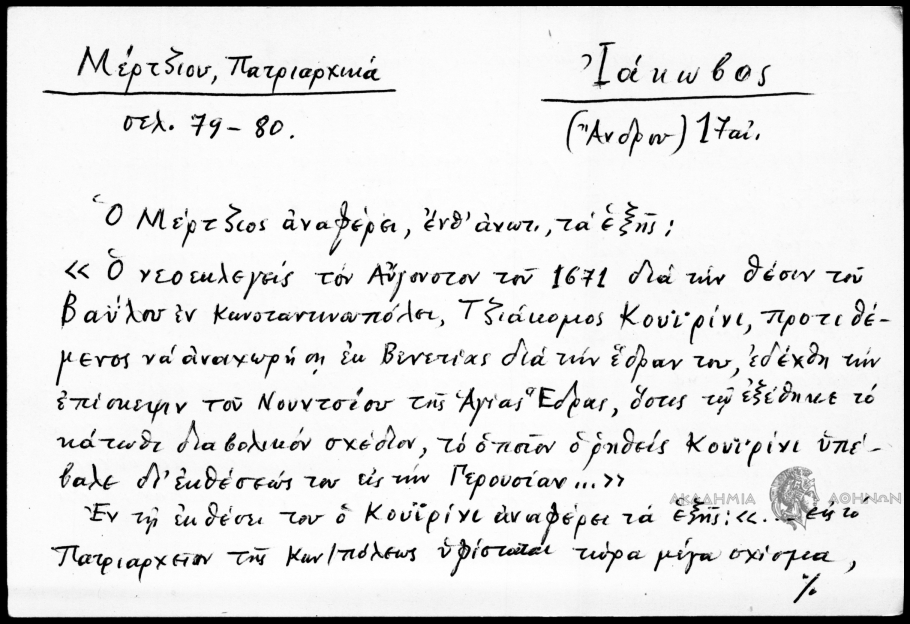 Μέρτζιου, Πατριαρχικά
σελ. 79-80.
Ἰάκωβος
(Ἄνδρου) 17 αἰ.
Ὁ Μέρτζιος ἀναφέρει, ἔνθ' ἀνωτ., τὰ ἑξῆς:
« Ὁ νεοεκλεγείς τὸν Αὔγουστον τοῦ 1671 διὰ τὴν θέσιν τοῦ
Βαΐλου ἐν Κωνσταντινουπόλει, Τζιάκομος Κουϊρίνι, προτιθέ-
μενος νὰ ἀναχωρήσῃ ἐκ Βενετίας διὰ τὴν ἕδραν του, ἐδέχθη τὴν
ἐπίσκεψιν τοῦ Νουντσίου τῆς Ἁγίας Ἕδρας, ὅστις τῷ ἐξέθηκε τὸ
κάτωθι διαβολικόν σχέδιον, τὸ ὁποῖον ὁ ῥηθείς Κουϊρίνι ὑπέ-
βαλε δι' ἐκθέσεώς του εἰς τὴν Γερουσίαν...»
Ἐν τῇ ἐκθέσει του ὁ Κουϊρίνι ἀναφέρει τὰ ἑξῆς: «... εἰς τὸ
Πατριαρχεῖον τῆς Κων/πόλεως ὑφίσταται τώρα μέγα σχίσμα,
%
ΑΚΑΔΗΜΙΑ ΑΘΗΝΩΝ